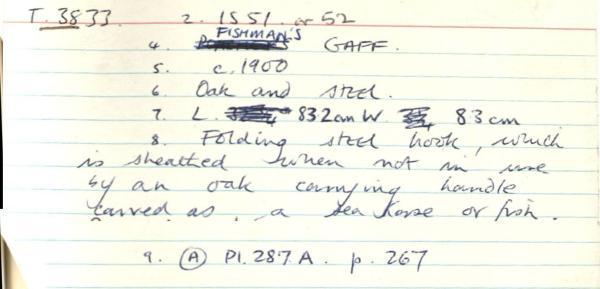 T. 3833 2. 1551. or 52
4. FISHMAN'S GAFF.
5. c. 1900
6. Oak and steel.
7. L. 832cm W. 83cm
8. Folding steel hook, which
is sheathed when not in use
by an oak carrying handle
carved as a sea horse or fish.
9. (A) Pl. 287A. p. 267